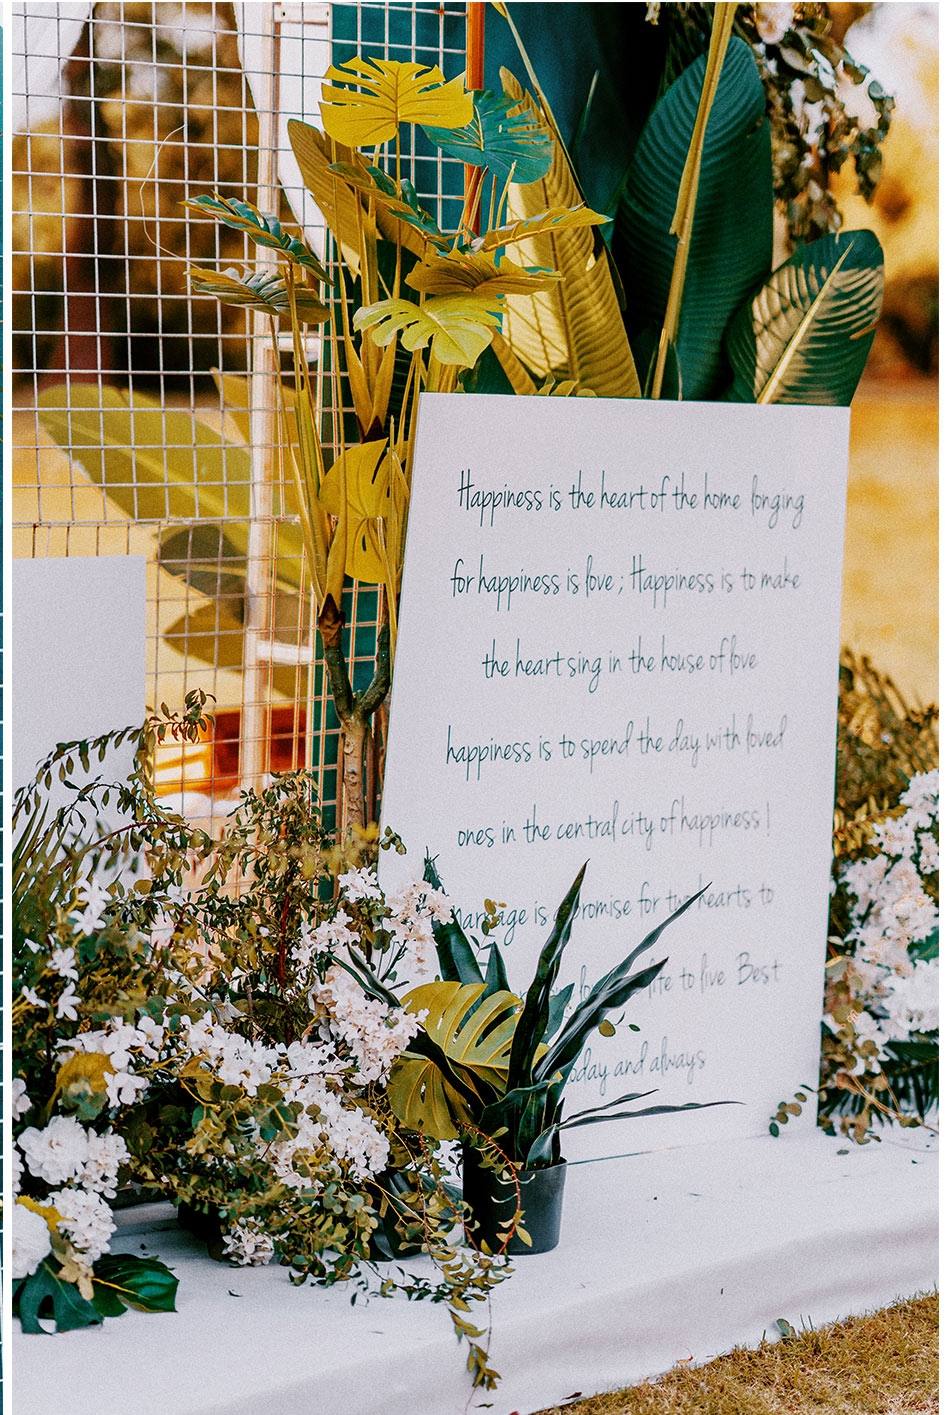 Happiness is the heart of the home longing
for happiness is love ; Happiness is to make
the heart sing in the house of love
happiness is to spend the day with loved
ones in the central city of happiness !
Marriage is a promise for two hearts to
life to live Best
today and always